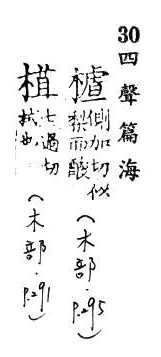 30 四聲篇海
樝
側加切似
棃而酸
(木部.P.295)
七過切
拭也
(木部.P.291)